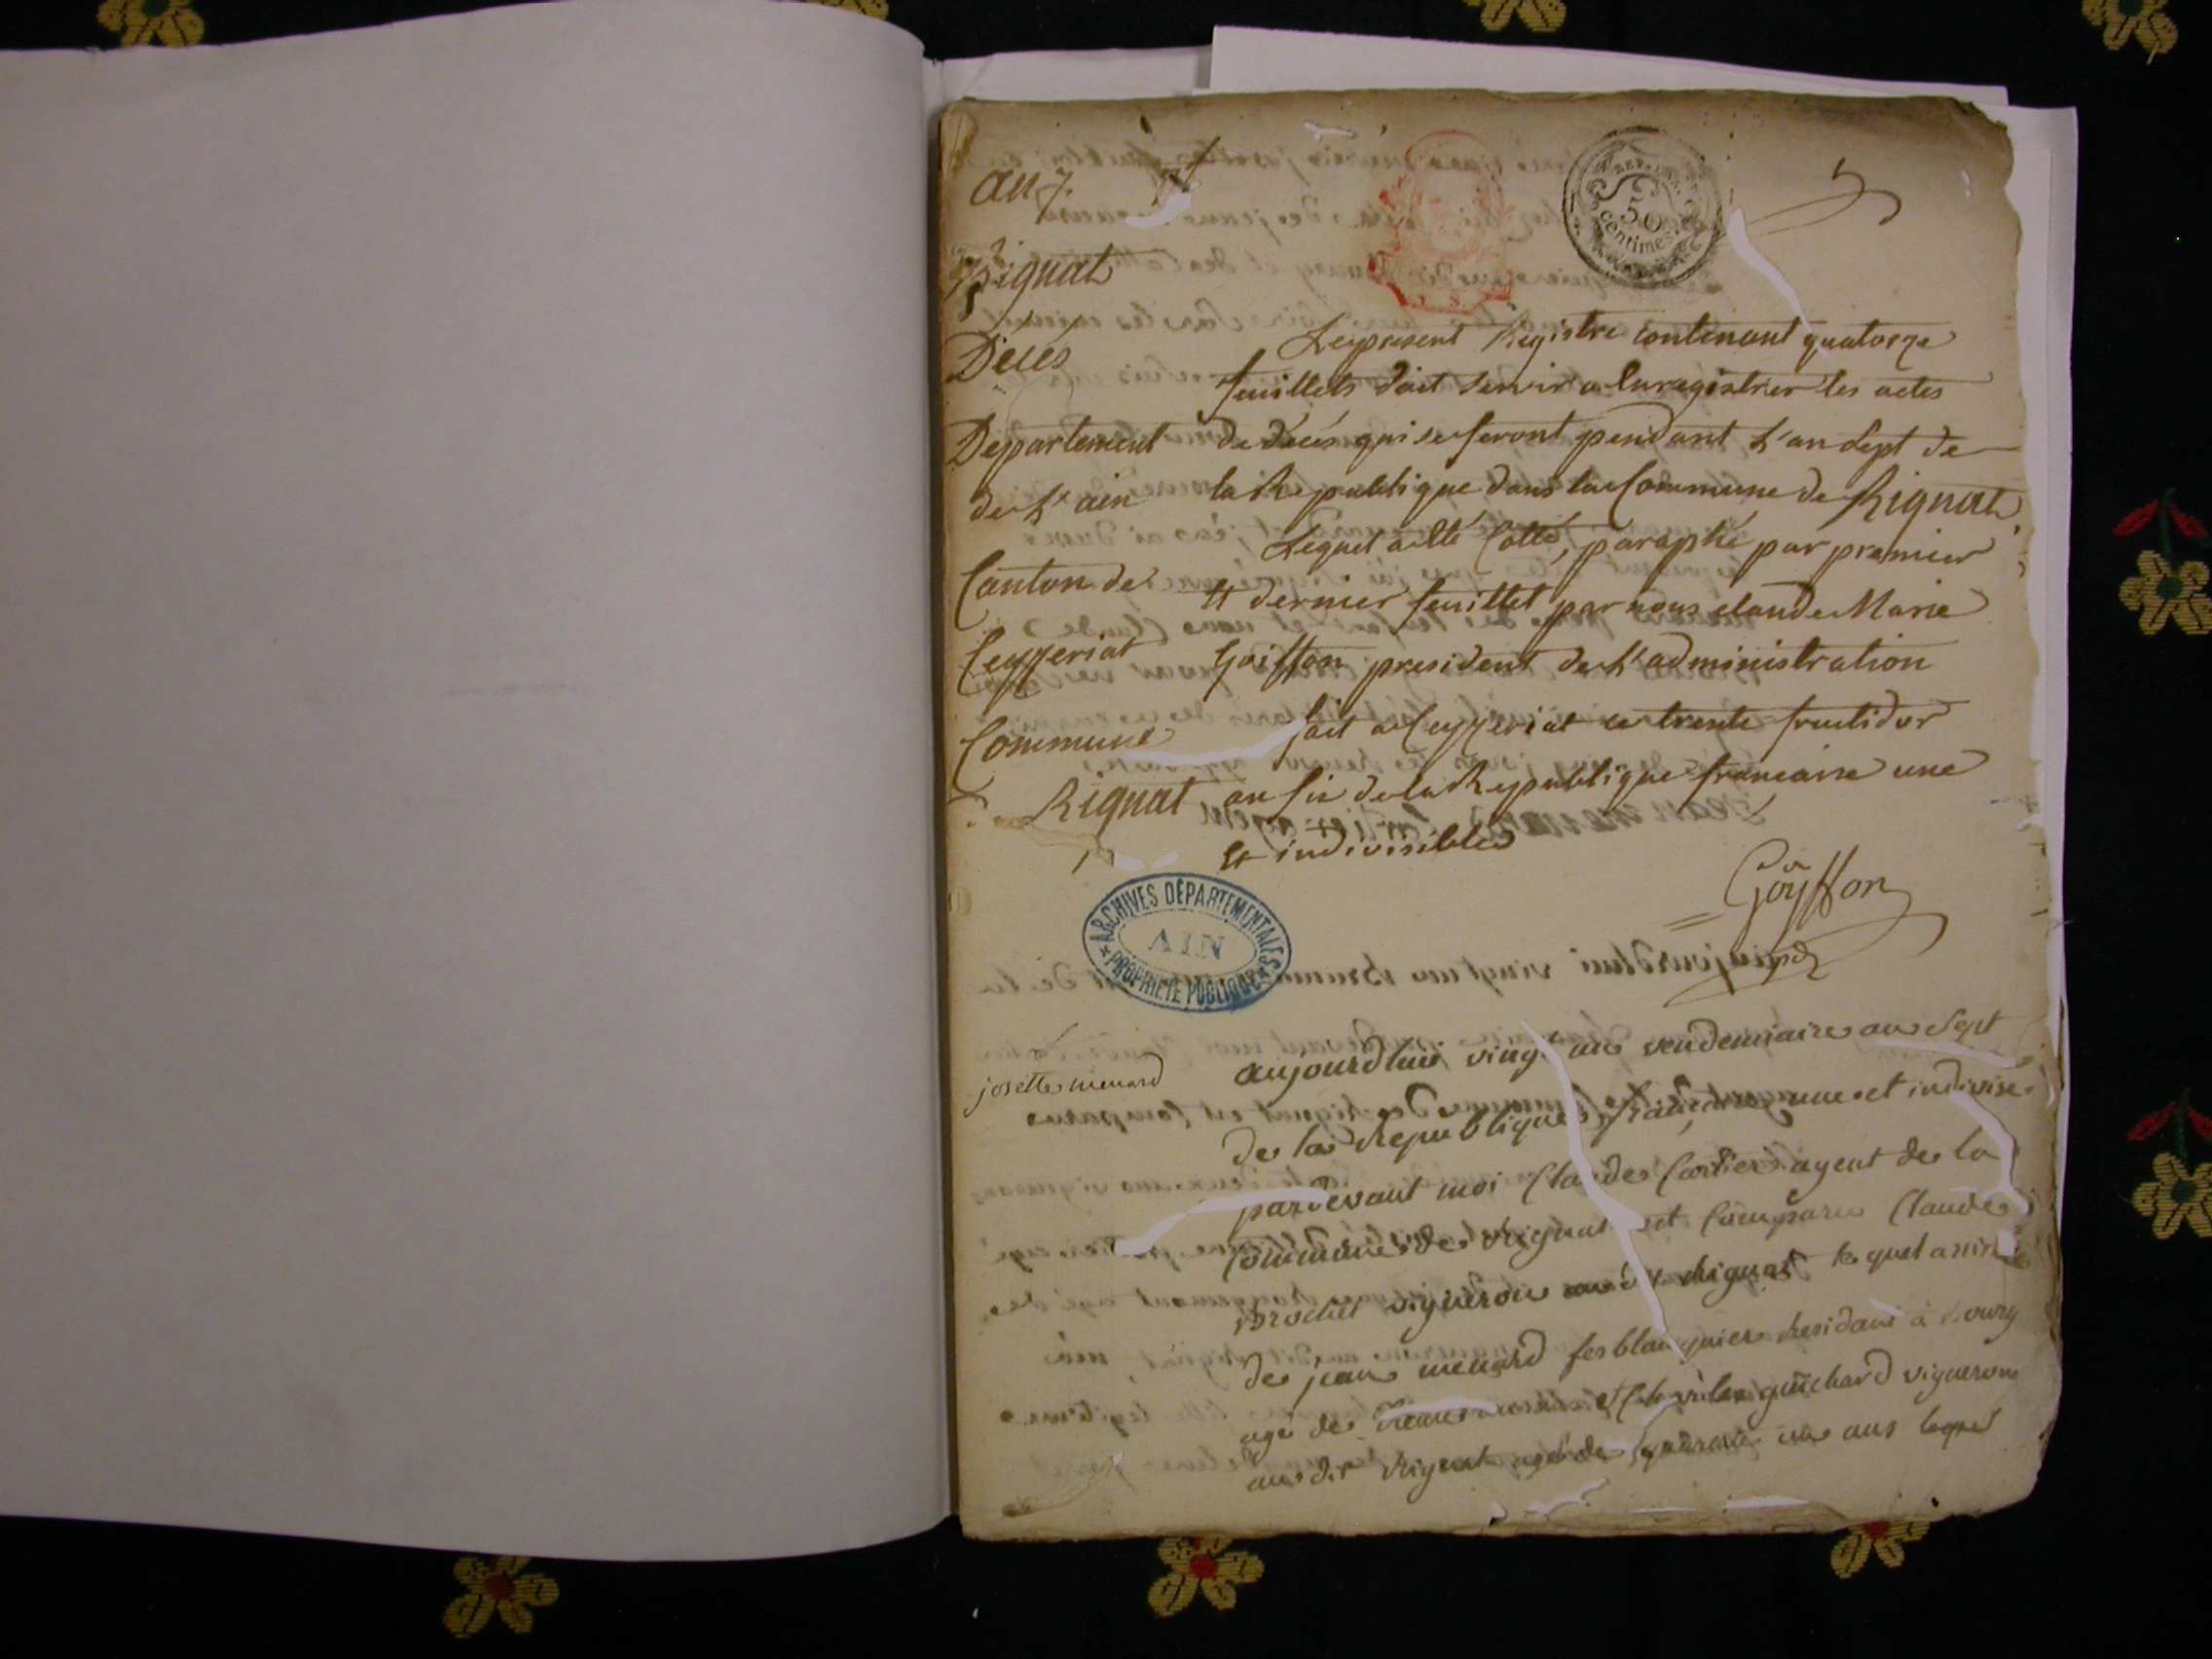 an 7.
REP. FRA.
50
centimes
Rignat
Décés
Département
de L'ain
Canton de
Ceyzeriat
Commune
Rignat
Le présent Registre contenant quatorze
feuillets doit servir a Enregistrer les actes
de décés qui se feront pendant L'an sept de
la Republique dans la Commune de Rignat,
Lequel a été Cotté, paraphé par premier
Et dernier feuillet par nous claude Marie
Goiffon president de L'administration
fait a Ceyzeriat ce trente fructidor
an six de la Republique francaise une
Et indivisible
Goÿffon
ARCHIVES DÉPARTEMENTALES
AIN
PROPRIÉTÉ PUBLIQUE
josette menard
aujourdhui vingt un vendemiaire an sept
de la Republique française une et indivise
pardevant moi Claude Cartier agent de la
Commune de Rignat est Comparu Claude
Brochet vigneron audit Rignat lequel assisté
de jean menard ferblanquier Residant à Bourg
agé de et guichard vigneron
audit Rignat agé de quarante un ans lequel